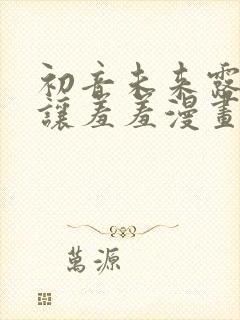 初音未来露
讓羞羞漫畫
萬源